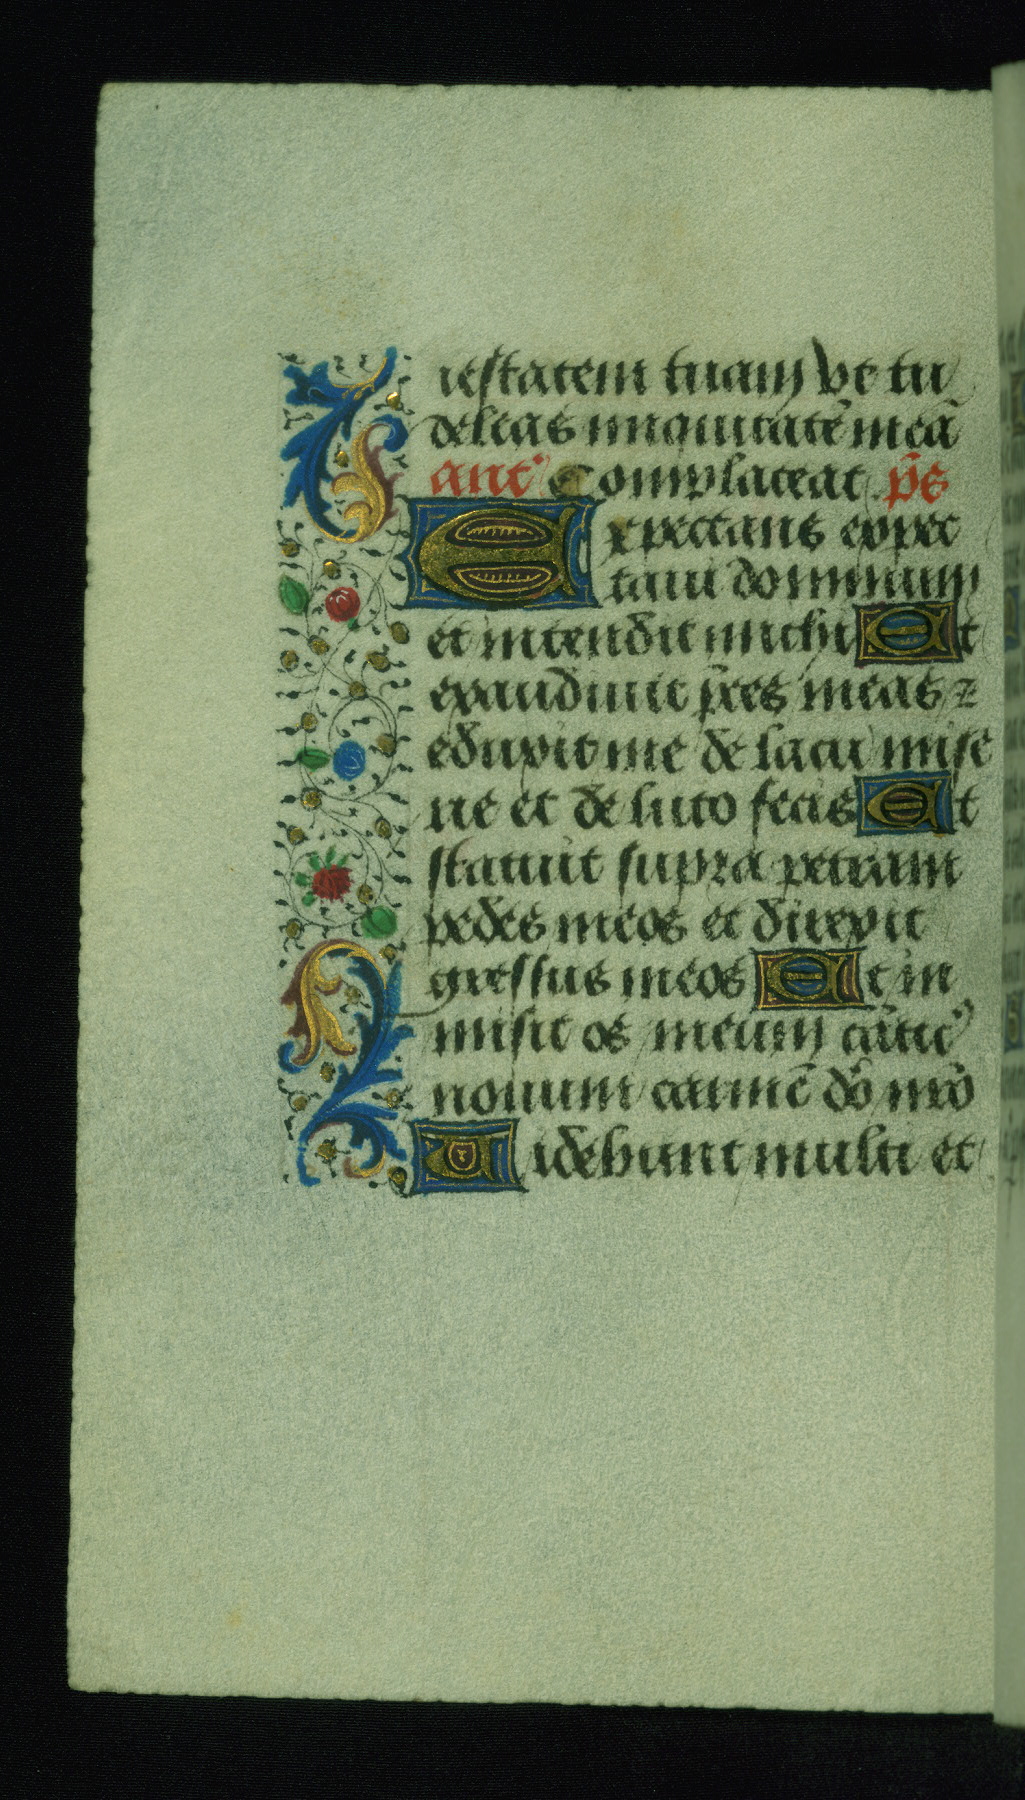 iestatem tuam vt tu
deleas iniquitatē meā
ant' Complaceat ps̄
Expectans expec
taui dominum
et intendit michi Et
exaudiuit p̄ces meas ⁊
eduxit me de lacu mise
rie et de luto fecis Et
statuit supra petram
pedes meos et direxit
gressus meos Et in
misit os meum cātic'
nouum carmē dō nr̄o
Uidebunt multi et